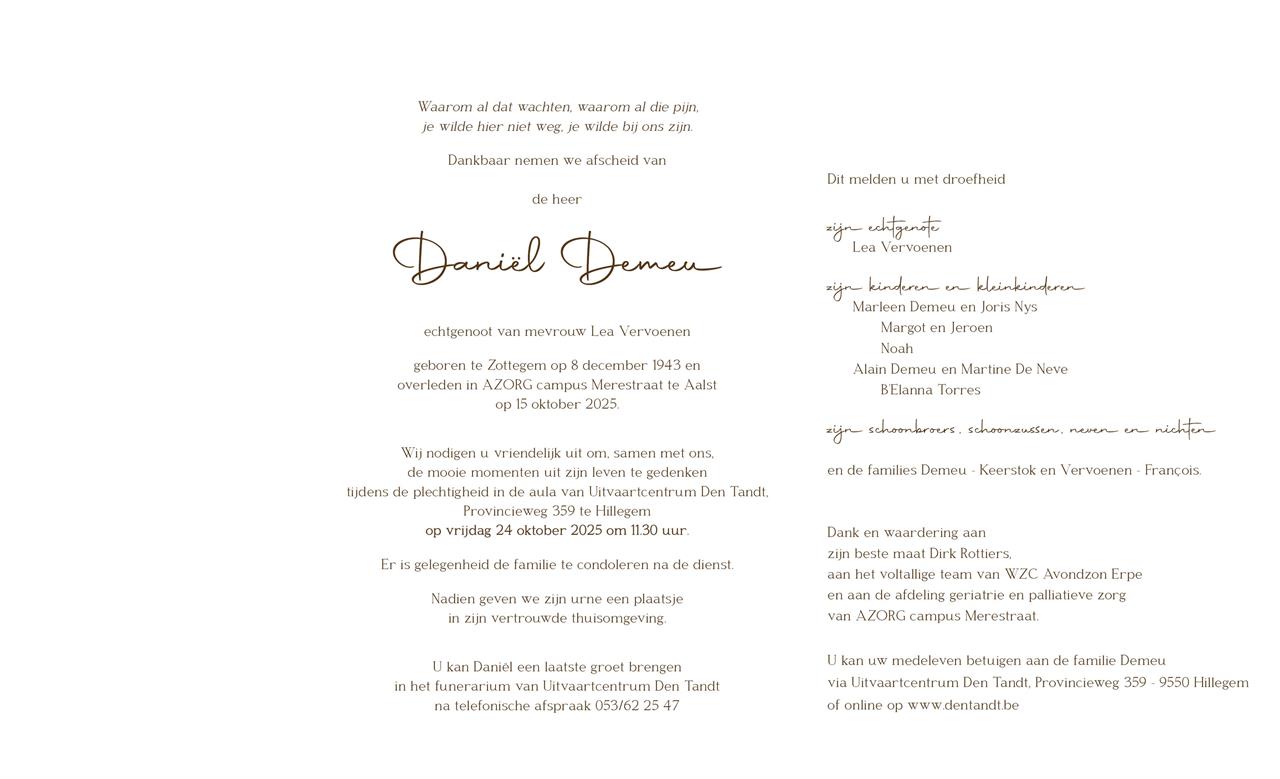 Waarom al dat wachten, waarom al die pijn,
je wilde hier niet weg, je wilde bij ons zijn.
Dankbaar nemen we afscheid van
de heer
Daniël Demeu
echtgenoot van mevrouw Lea Vervoenen
geboren te Zottegem op 8 december 1943 en
overleden in AZORG campus Merestraat te Aalst
op 15 oktober 2025.
Wij nodigen u vriendelijk uit om, samen met ons,
de mooie momenten uit zijn leven te gedenken
tijdens de plechtigheid in de aula van Uitvaartcentrum Den Tandt,
Provincieweg 359 te Hillegem
op vrijdag 24 oktober 2025 om 11.30 uur.
Er is gelegenheid de familie te condoleren na de dienst.
Nadien geven we zijn urne een plaatsje
in zijn vertrouwde thuisomgeving.
U kan Daniël een laatste groet brengen
in het funerarium van Uitvaartcentrum Den Tandt
na telefonische afspraak 053/62 25 47
Dit melden u met droefheid
zijn echtgenote
Lea Vervoenen
zijn kinderen en kleinkinderen
Marleen Demeu en Joris Nys
Margot en Jeroen
Noah
Alain Demeu en Martine De Neve
B'Elanna Torres
zijn schoonbroers, schoonzussen, neven en nichten
en de families Demeu - Keerstok en Vervoenen - François.
Dank en waardering aan
zijn beste maat Dirk Rottiers,
aan het voltallige team van WZC Avondzon Erpe
en aan de afdeling geriatrie en palliatieve zorg
van AZORG campus Merestraat.
U kan uw medeleven betuigen aan de familie Demeu
via Uitvaartcentrum Den Tandt, Provincieweg 359 - 9550 Hillegem
of online op www.dentandt.be